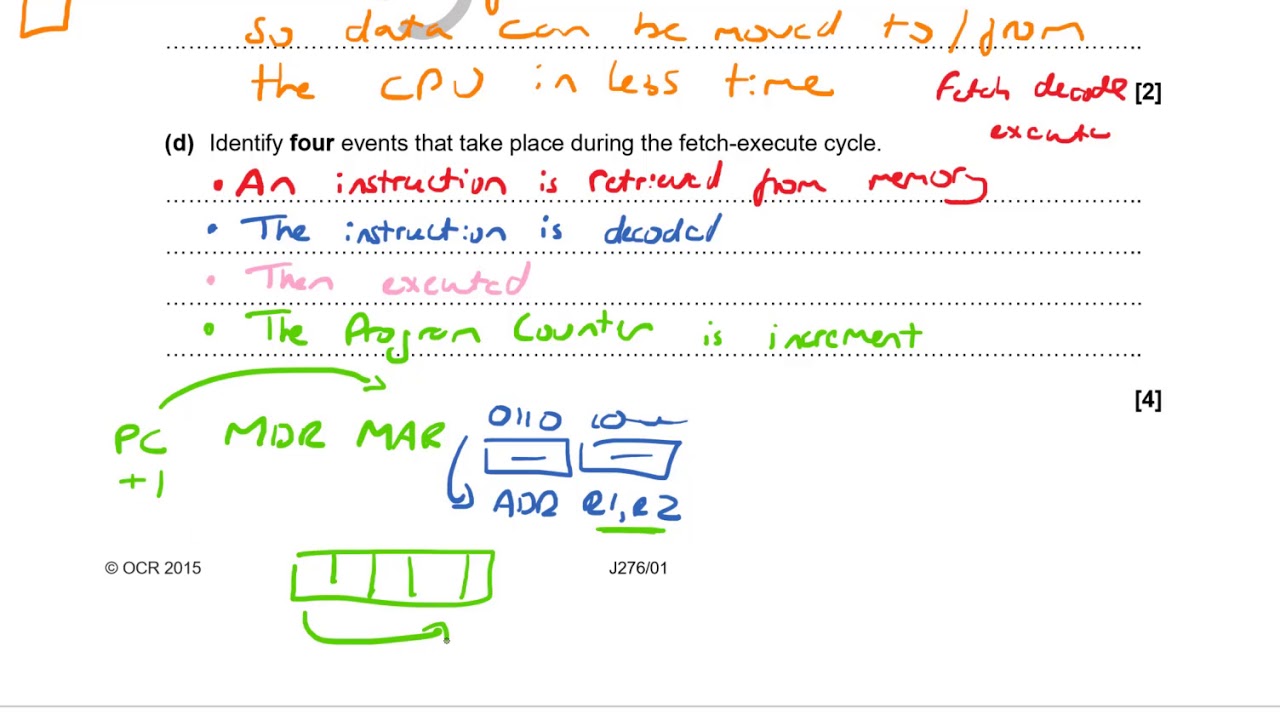 so data can be moved to/from
the CPU in less time [2]
Fetch decode
execute
(d) Identify four events that take place during the fetch-execute cycle.
• An instruction is retrieved from memory
• The instruction is decoded
• Then executed
• The Program Counter is increment
[4]
PC MDR MAR 0110
+1 ADD R1,R2
© OCR 2015 J276/01